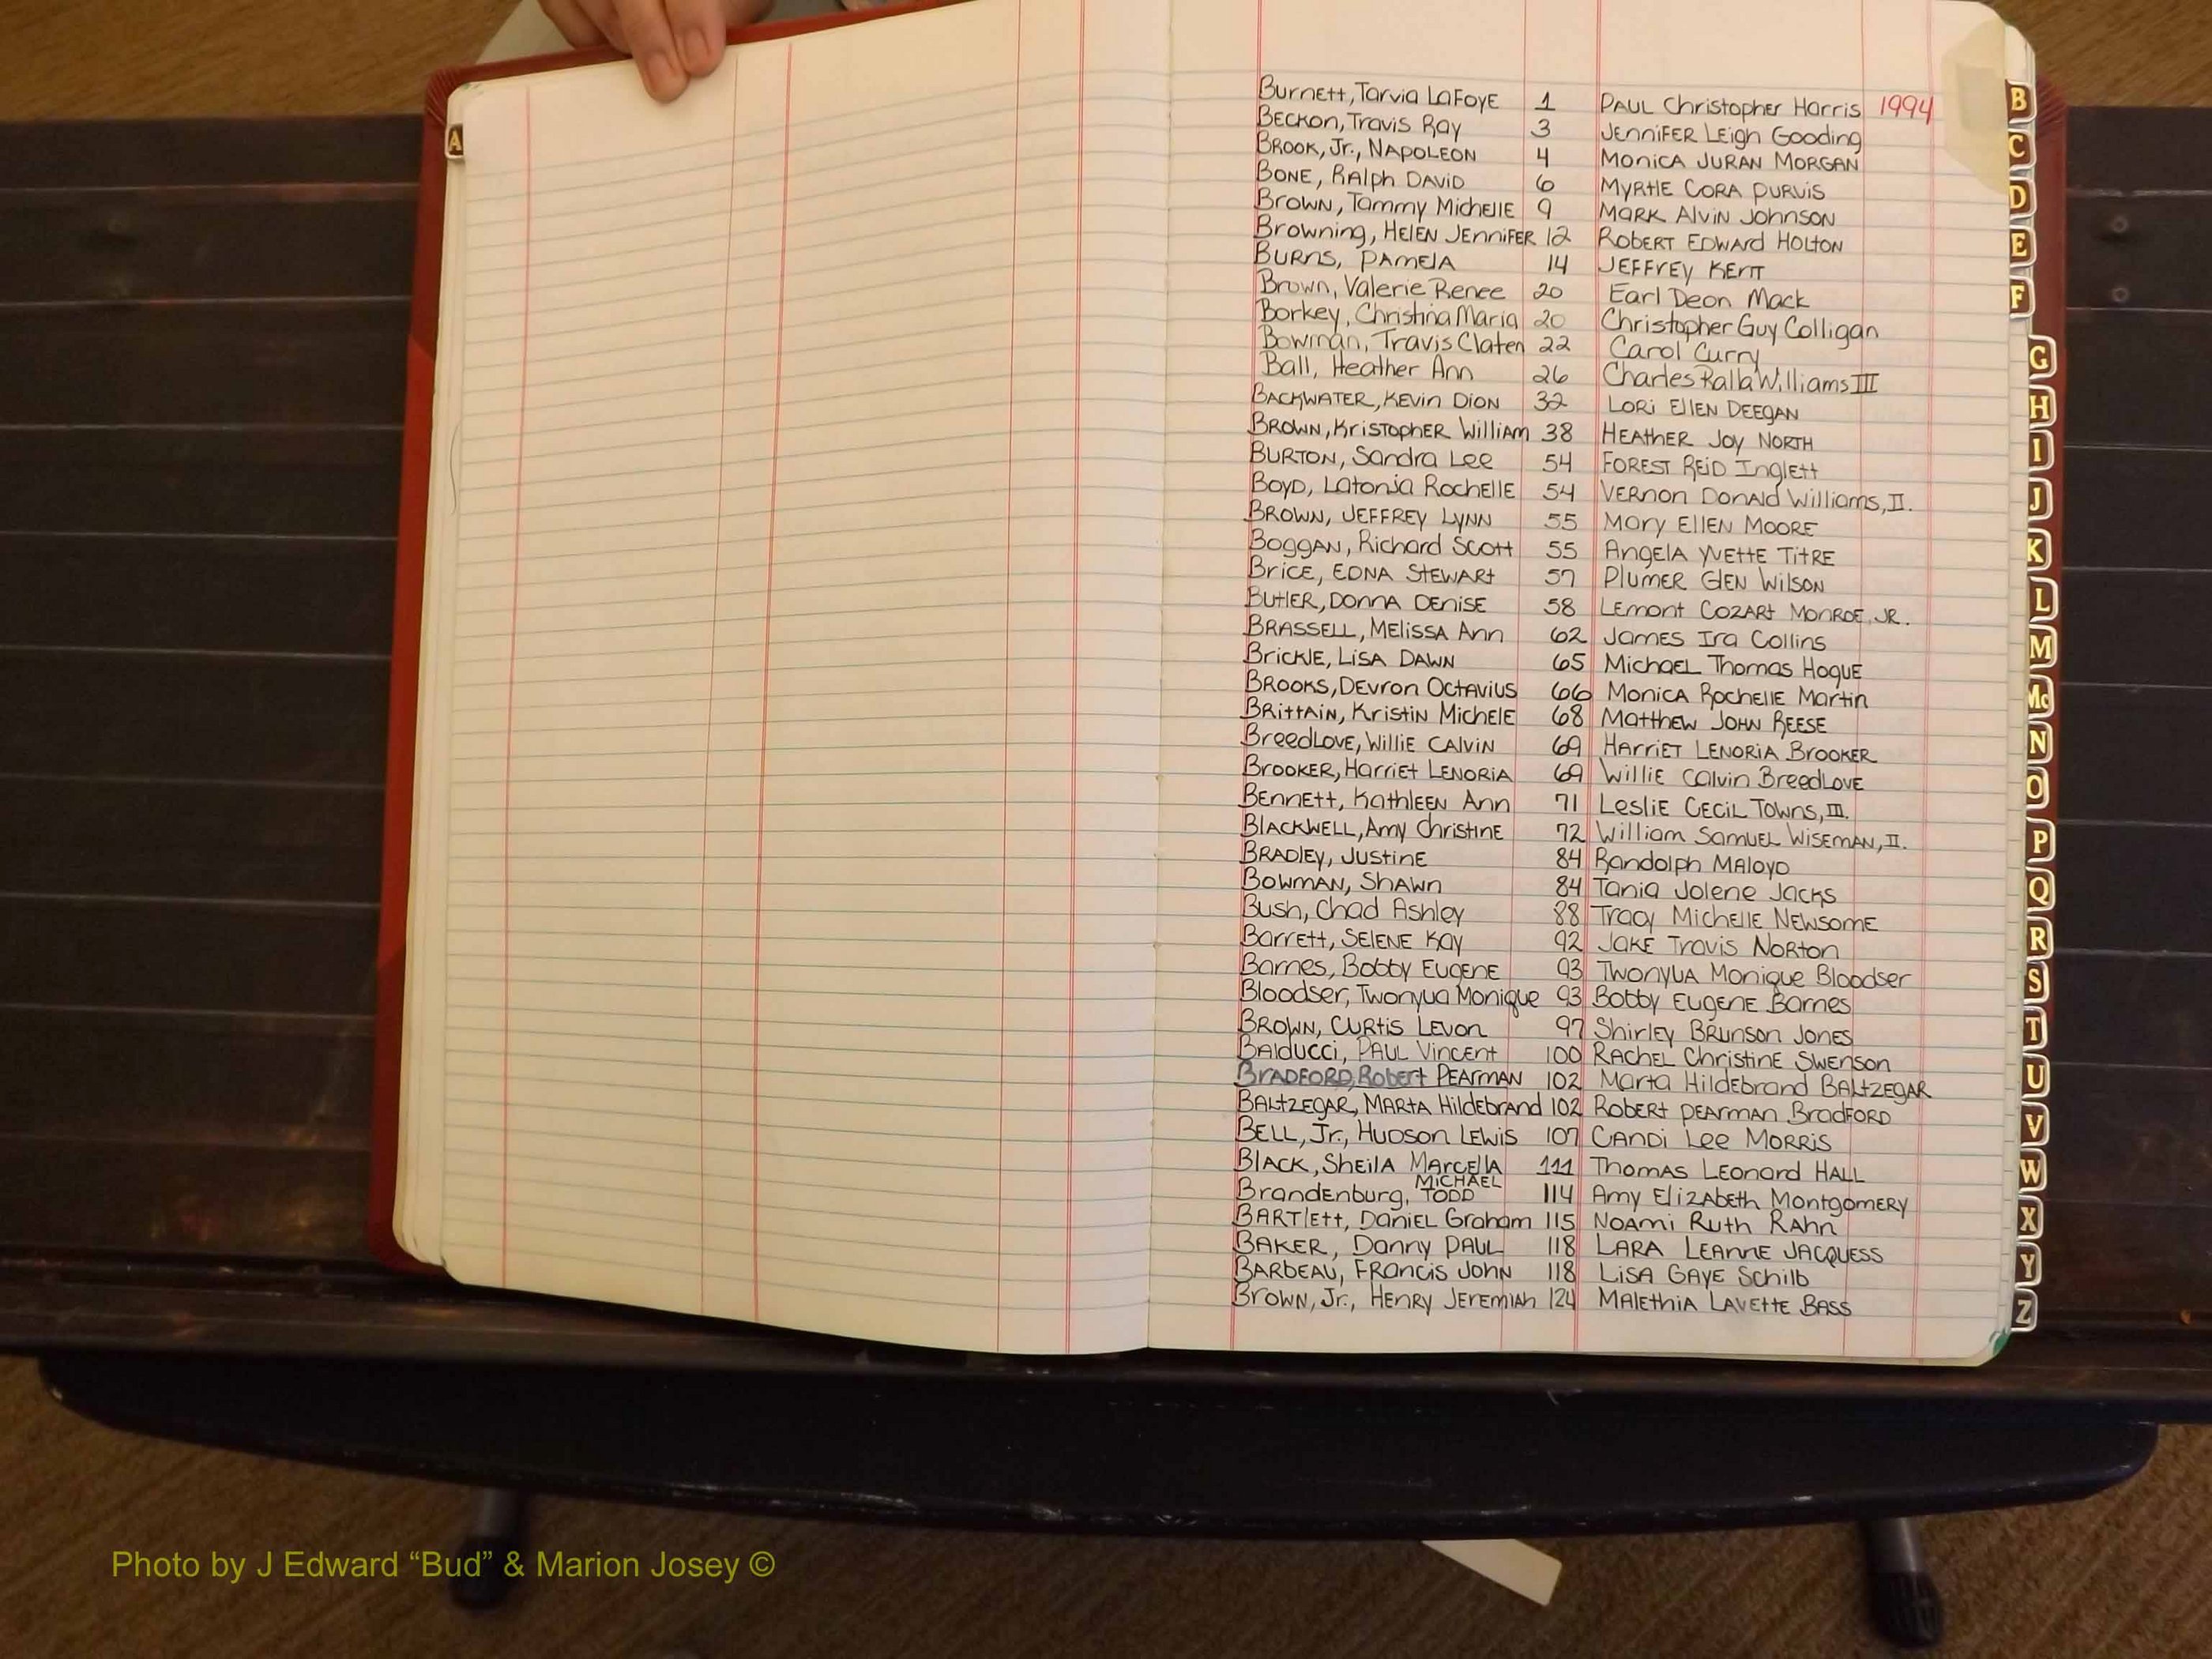 A
Burnett, Tarvia LaFoye 1 Paul Christopher Harris 1994
Beckon, Travis Ray 3 Jennifer Leigh Gooding
Brook, Jr., Napoleon 4 Monica Juran Morgan
Bone, Ralph David 6 Myrtle Cora Purvis
Brown, Tammy Michelle 9 Mark Alvin Johnson
Browning, Helen Jennifer 12 Robert Edward Holton
Burns, Pamela 14 Jeffrey Kent
Brown, Valerie Renee 20 Earl Deon Mack
Borkey, Christina Maria 20 Christopher Guy Colligan
Bowman, Travis Claten 22 Carol Curry
Ball, Heather Ann 26 Charles Ralla Williams III
Backwater, Kevin Dion 32 Lori Ellen Deegan
Brown, Kristopher William 38 Heather Joy North
Burton, Sandra Lee 54 Forest Reid Inglett
Boyd, Latonja Rochelle 54 Vernon Donald Williams, II.
Brown, Jeffrey Lynn 55 Mary Ellen Moore
Boggan, Richard Scott 55 Angela Yvette Titre
Brice, Edna Stewart 57 Plumer Glen Wilson
Butler, Donna Denise 58 Lemont Cozart Monroe, Jr.
Brassell, Melissa Ann 62 James Ira Collins
Brickle, Lisa Dawn 65 Michael Thomas Hogue
Brooks, Devron Octavius 66 Monica Rochelle Martin
Brittain, Kristin Michele 68 Matthew John Reese
Breedlove, Willie Calvin 69 Harriet Lenoria Brooker
Brooker, Harriet Lenoria 69 Willie Calvin Breedlove
Bennett, Kathleen Ann 71 Leslie Cecil Towns, III.
Blackwell, Amy Christine 72 William Samuel Wiseman, II.
Bradley, Justine 84 Randolph Maloyd
Bowman, Shawn 84 Tania Jolene Jacks
Bush, Chad Ashley 88 Tracy Michelle Newsome
Barrett, Selene Kay 92 Jake Travis Norton
Barnes, Bobby Eugene 93 Twonyua Monique Bloodser
Bloodser, Twonyua Monique 93 Bobby Eugene Barnes
Brown, Curtis Levon 97 Shirley Brunson Jones
Balducci, Paul Vincent 100 Rachel Christine Swenson
Bradford, Robert Pearman 102 Marta Hildebrand Baltzegar
Baltzegar, Marta Hildebrand 102 Robert Pearman Bradford
Bell, Jr., Hudson Lewis 107 Candi Lee Morris
Black, Sheila Marcella 111 Thomas Leonard Hall
Michael
Brandenburg, Todd 114 Amy Elizabeth Montgomery
Bartlett, Daniel Graham 115 Noami Ruth Rahn
Baker, Danny Paul 118 Lara Leanne Jacquess
Barbeau, Francis John 118 Lisa Gaye Schilb
Brown, Jr., Henry Jeremiah 124 Malethia Lavette Bass
B
C
D
E
F
G
H
I
J
K
L
M
Mc
N
O
P
Q
R
S
T
U
V
W
X
Y
Z
Photo by J Edward “Bud” & Marion Josey ©